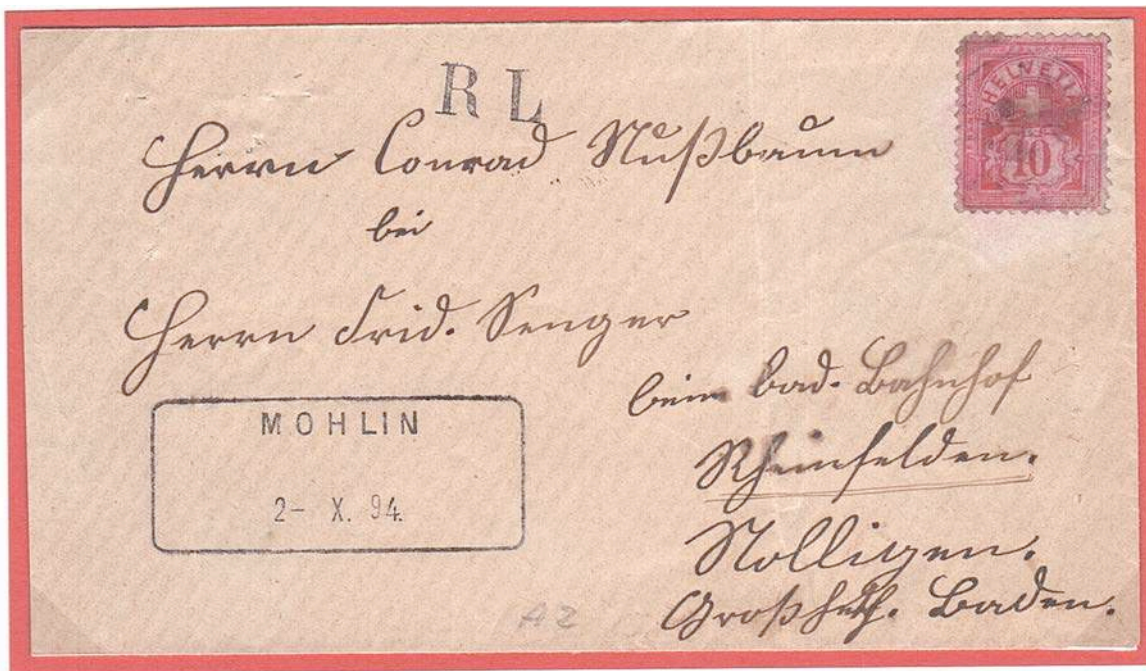 R L
HELVETIA
10
Herrn Conrad Nußbaum
bei
Herrn Frid. Senger
beim bad. Bahnhof
Rheinfelden.
Nolligen.
Großhzth. Baden.
MOHLIN
2- X. 94.
AZ